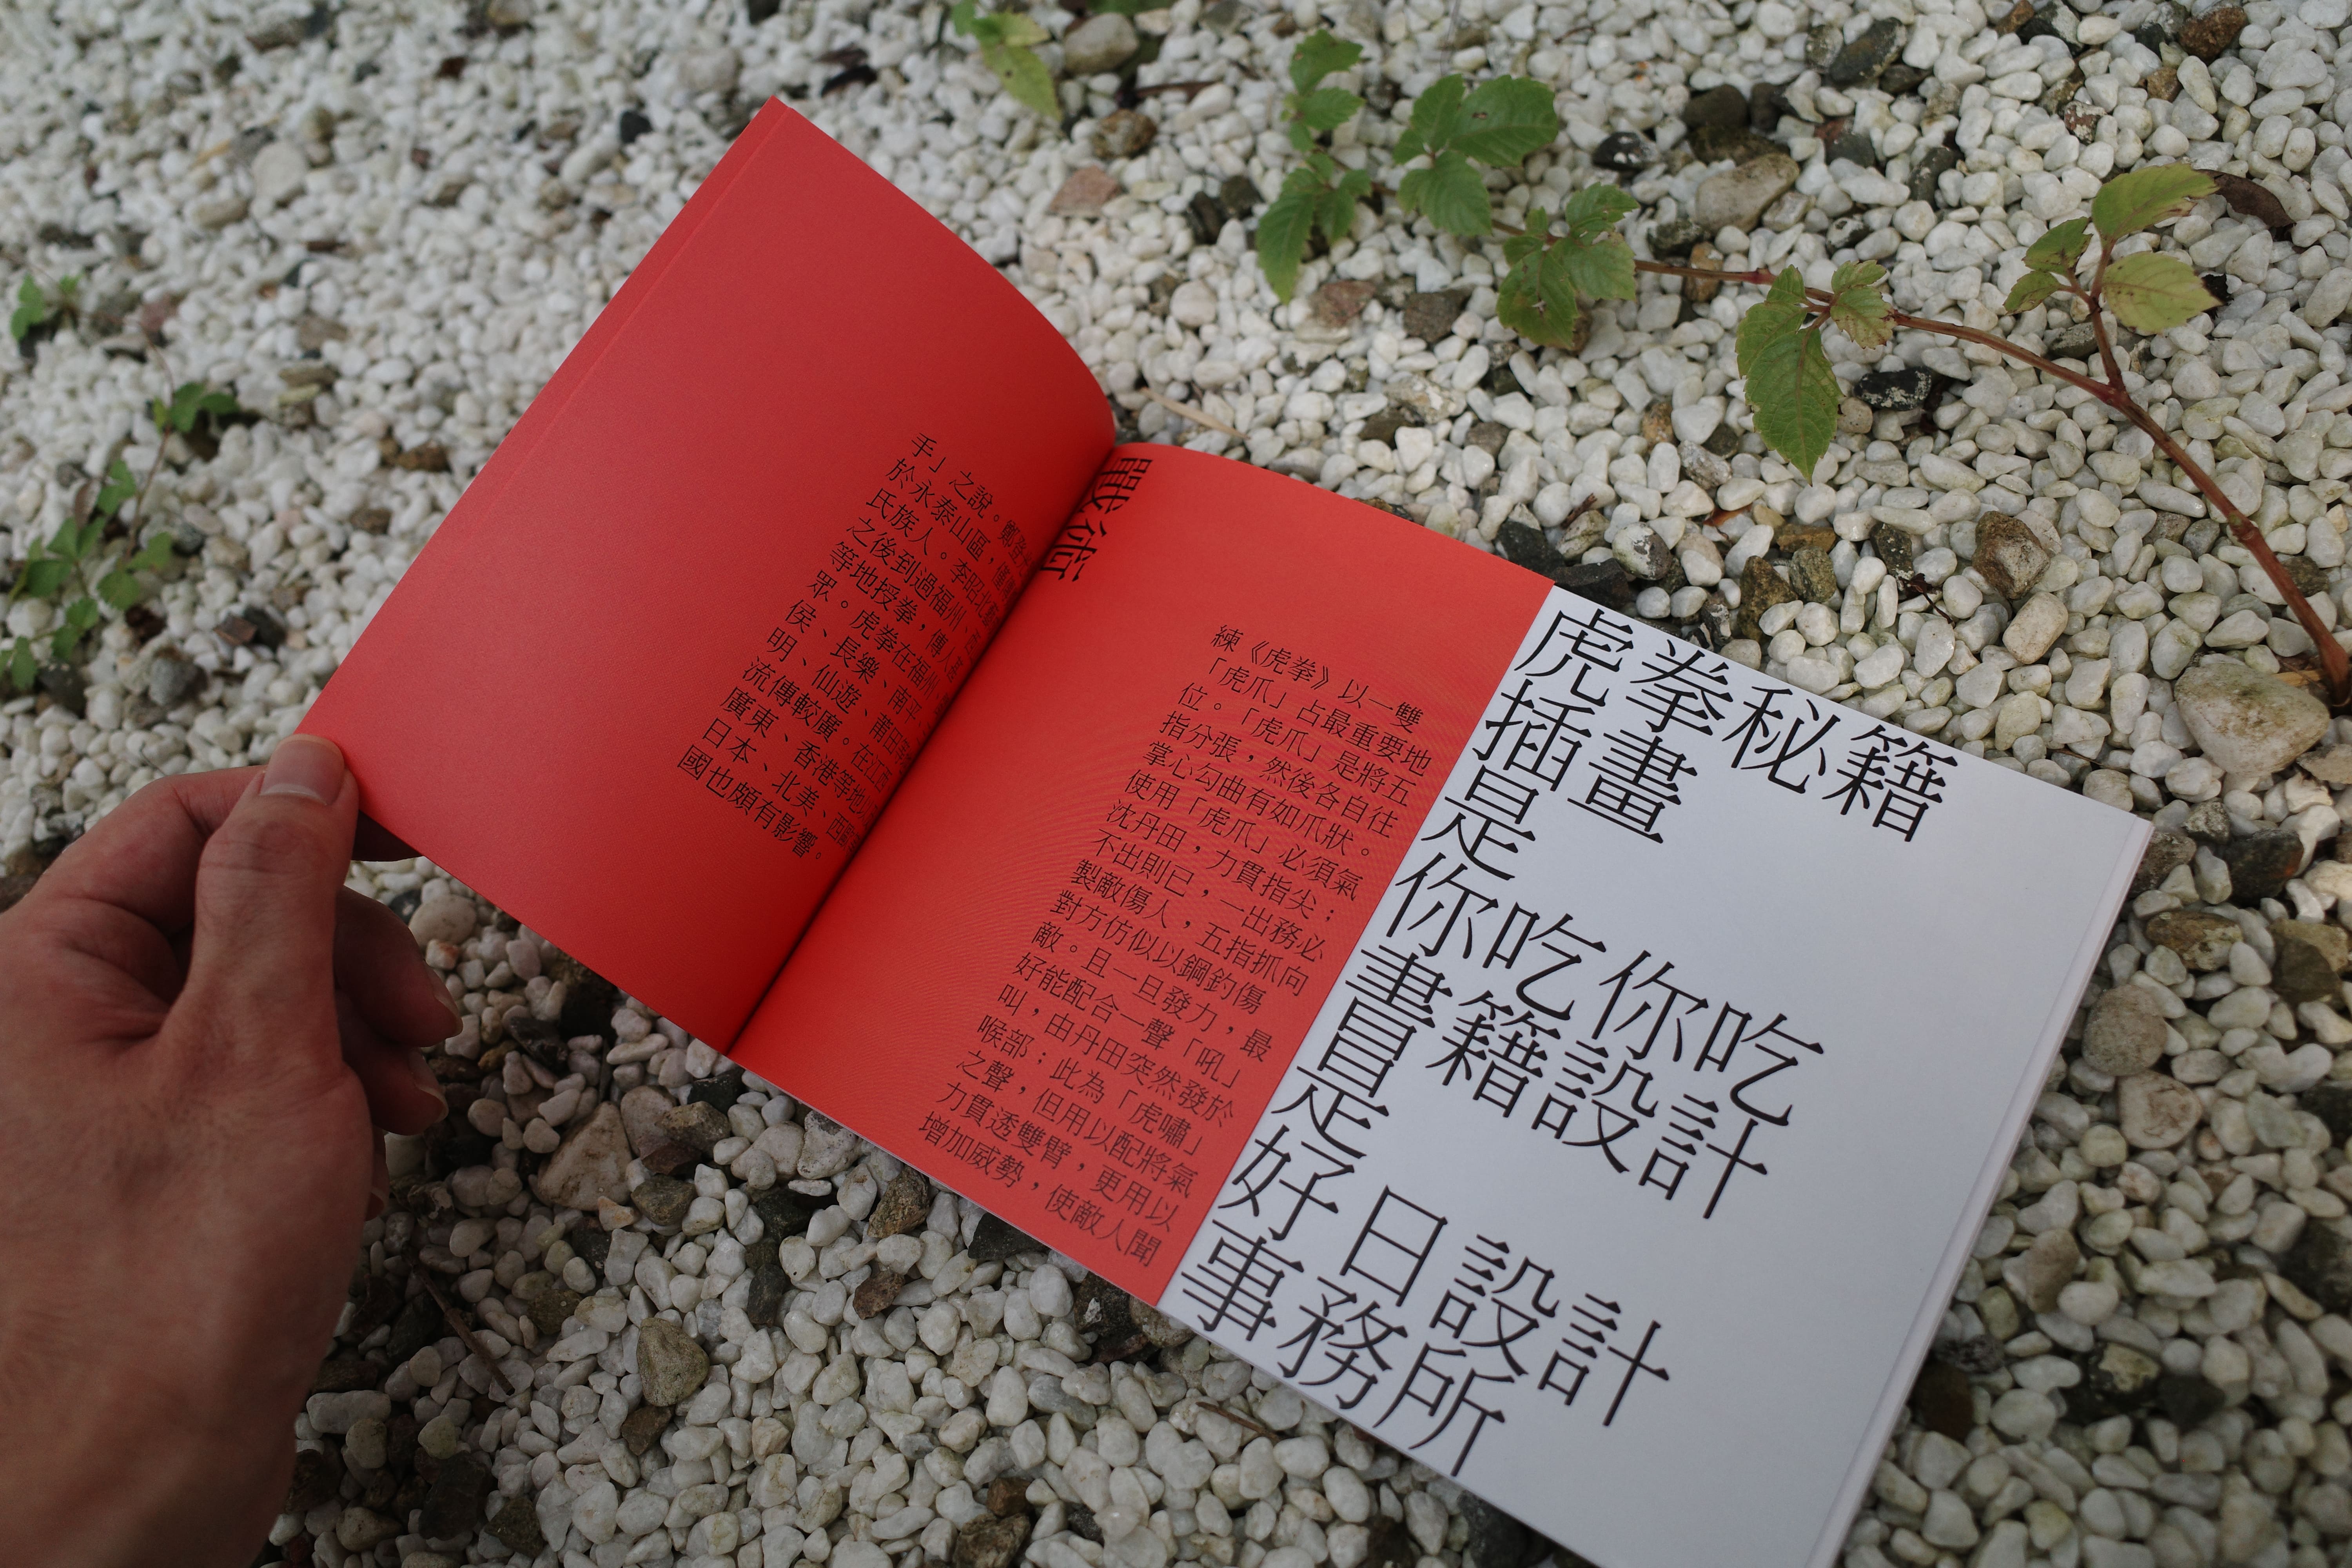 手」之說。鄭登
於永泰山區，
氏族人。李昭北
之後到過福州、
等地授拳，傳人甚
眾。虎拳在福州、
侯、長樂、南平、
明、仙遊、莆田等
流傳較廣。在江西
廣東、香港等地以
日本、北美、西歐
國也頗有影響。
戰術
練《虎拳》以一雙
「虎爪」占最重要地
位。「虎爪」是將五
指分張，然後各自往
掌心勾曲有如爪狀。
使用「虎爪」必須氣
沈丹田，力貫指尖；
不出則已，一出務必
製敵傷人，五指抓向
對方仿似以鋼釣傷
敵。且一旦發力，最
好能配合一聲「吼」
叫，由丹田突然發於
喉部；此為「虎嘯」
之聲，但用以配將氣
力貫透雙臂，更用以
增加威勢，使敵人聞
虎拳秘籍
插畫
是
你吃你吃
書籍設計
是
好日設計
事務所